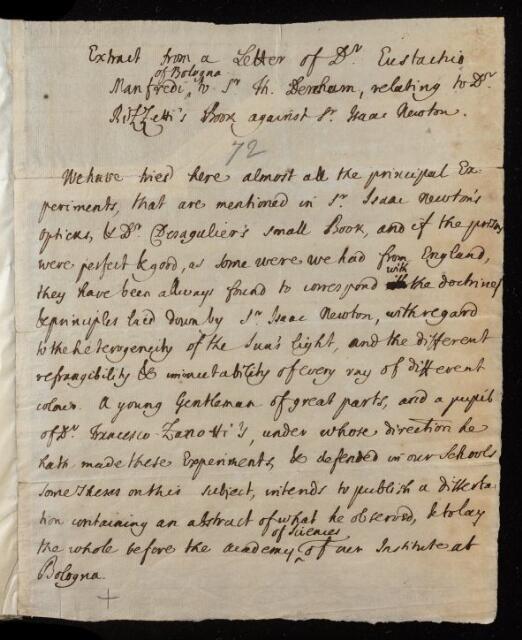 Extract from a Letter of Dr. Eustachio
Manfredi of Bologna, to Sr. Th. Dereham, relating to Dr.
Rizzetti's Book against Sr. Isaac Newton.
72
We have tried here almost all the principal Ex-
periments, that are mentioned in Sr. Isaac Newton's
opticks, & Dr. Desagulier's small Book, and if the prisms
were perfect & good, as some were we had from England,
they have been allways found to correspond with the doctrines
& principles laid down by Sr. Isaac Newton, with regard
to the heterogeneity of the Sun's light, and the different
refrangibility & immutability of every ray of different
colour. A young Gentleman of great parts, and a pupil
of Dr. Francesco Zanotti's, under whose direction he
hath made these Experiments, & defended in our Schools
some Theses on this subject, intends to publish a disserta-
tion containing an abstract of what he observed, & to lay
the whole before the academy of Sciences of our Institute at
Bologna.
+